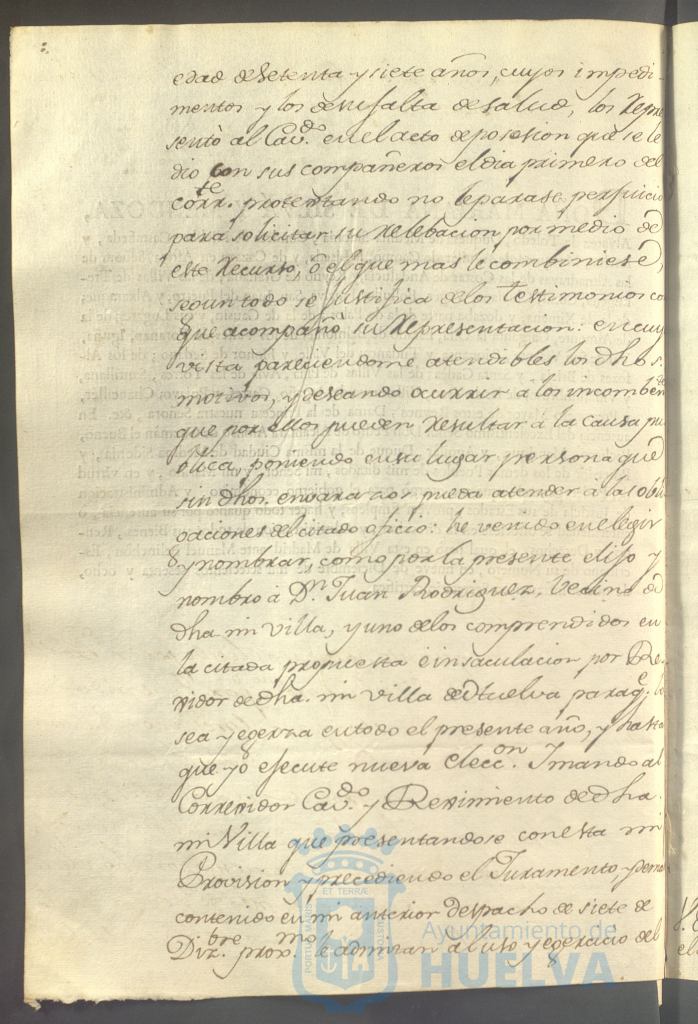 edad de setenta y siete años, cuyos impedi-
mentos y los de su falta de salud, los Repre
sentò al Cav.do en el acto de posesion que se le
dio con sus compañeros el dia primero del
corr.te protextando no le parase perjuicio
para solicitar su relebacion por medio de
este Recurso, ò el que mas le combiniese,
segun todo se Justifica de los Testimonios co
que acompañò su Representacion: en cuy
vista pareciendome atendibles los dhos.
motivos, y deseando ocurrir à los incombe
que por ellos pueden resultar à la causa pu
blica, poniendo en su lugar persona que
sin dhos. envarazos pueda atender à las obli
gaciones del citado oficio: he venido en elegir
y nombrar, como por la presente elijo y
nombro à Dn. Juan Rodriguez, Vecino de
dha mi Villa, y uno de los comprendidos en
la citada propuesta è insaculacion por Re-
gidor de dha. mi Villa de Huelva para q.e lo
sea y egerza en todo el presente año, y hasta
que yo ejecute nueva Elecc.on Y mando al
Corregidor Cav.do y Regimiento de dha.
mi Villa que presentandose con esta mi
Provision y precediendo el Juramento y demas
contenido en mi anterior Despacho de siete de
Diz.bre prox.mo le admitan al uso y egercicio del
PORTUS MARIS
ET TERRÆ
CUSTODIA
Ayuntamiento de
HUELVA